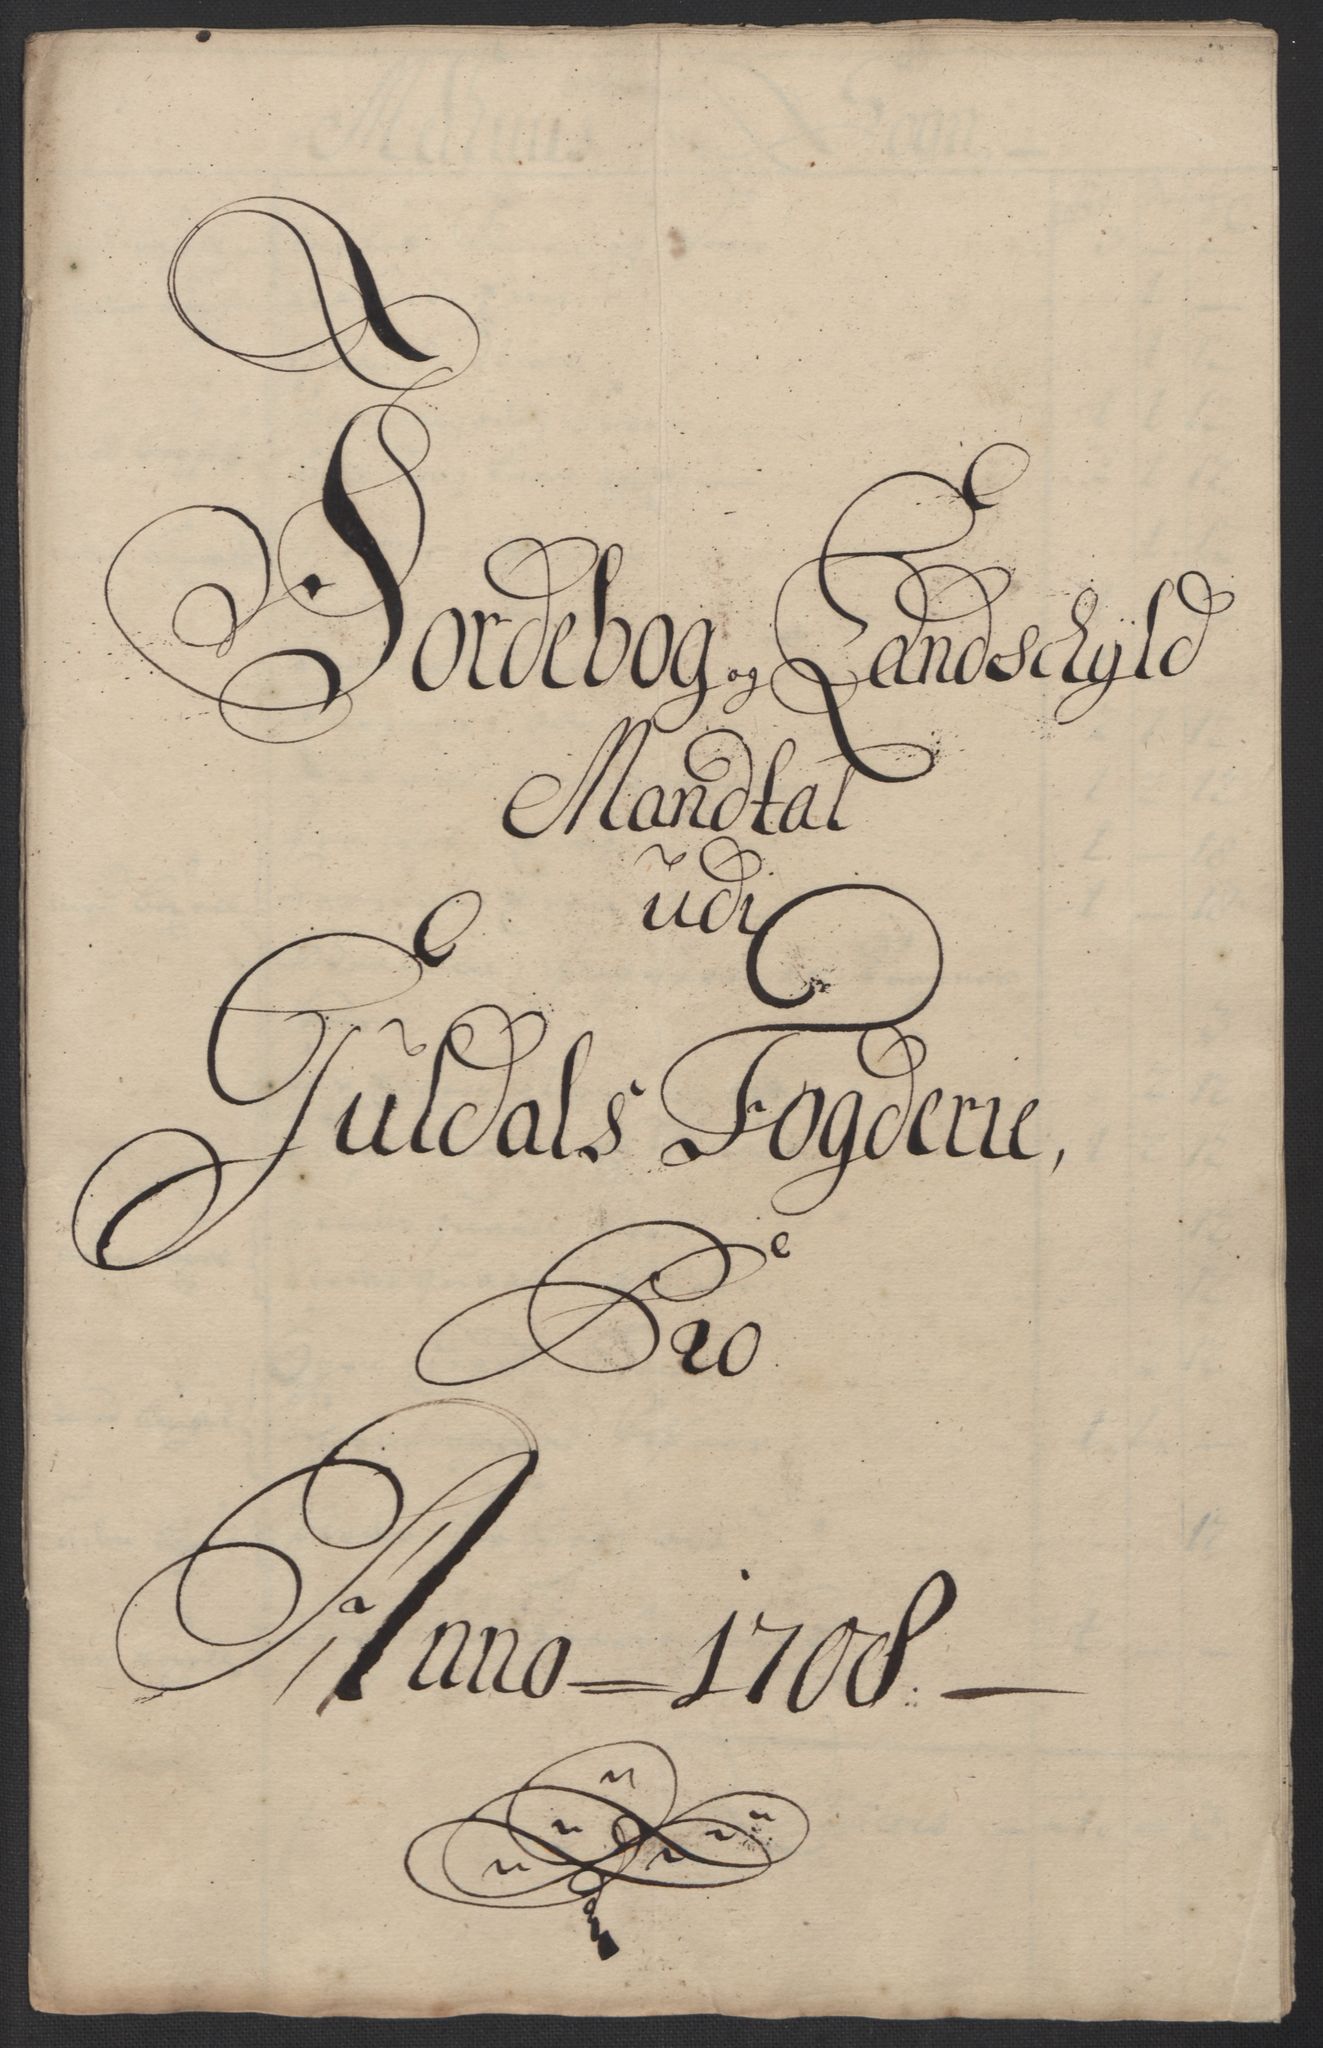 Jordebog og Landschÿld
Mandtal
udi
Guldals Fogderie,
Pro
Anno = 1708. —